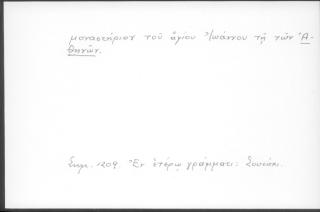 μοναστήριον τοῦ ἁγίου Ἰωάννου τῇ τῶν Ἀ-
θηνῶν.
Σημ. 1209. Ἐν ἑτέρῳ γράμματι: Σουτάκι.